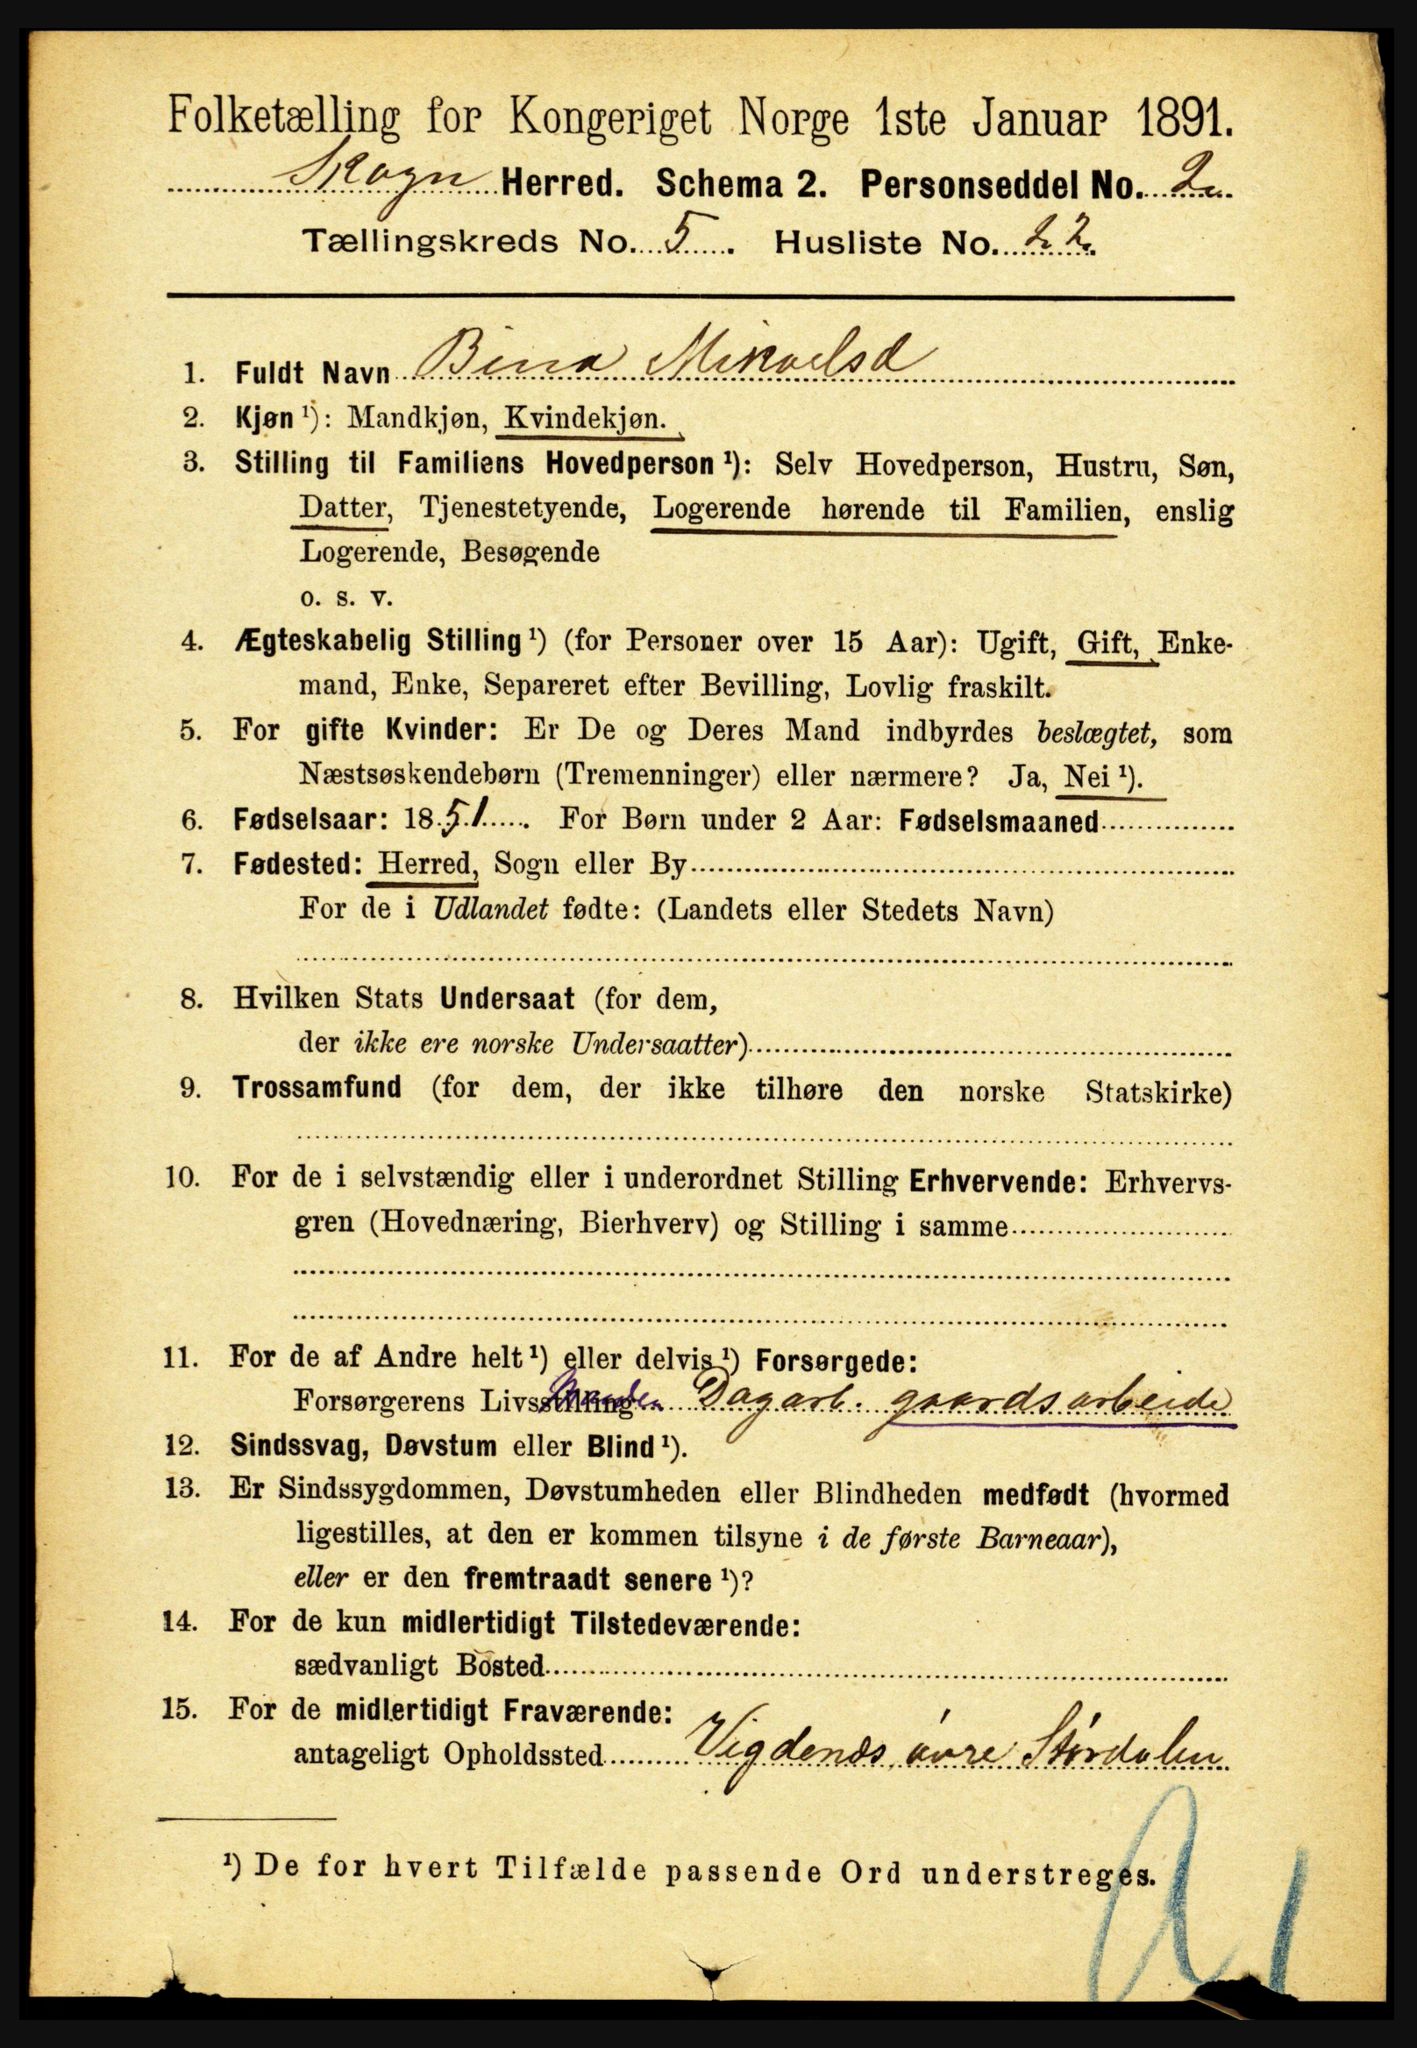 Folketælling for Kongeriget Norge 1ste Januar 1891.
Skogn Herred. Schema 2. Personseddel No. 2
Tællingskreds No. 5. Husliste No. 22.
1. Fuldt Navn Bina Mikaelsd
2. Kjøn ¹): Mandkjøn, Kvindekjøn.
3. Stilling til Familiens Hovedperson ¹): Selv Hovedperson, Hustru, Søn,
Datter, Tjenestetyende, Logerende hørende til Familien, enslig
Logerende, Besøgende
o. s. v.
4. Ægteskabelig Stilling ¹) (for Personer over 15 Aar): Ugift, Gift, Enke-
mand, Enke, Separeret efter Bevilling, Lovlig fraskilt.
5. For gifte Kvinder: Er De og Deres Mand indbyrdes beslægtet, som
Næstsøskendebørn (Tremenninger) eller nærmere? Ja, Nei ¹).
6. Fødselsaar: 1851. For Børn under 2 Aar: Fødselsmaaned
7. Fødested: Herred, Sogn eller By
For de i Udlandet fødte: (Landets eller Stedets Navn)
8. Hvilken Stats Undersaat (for dem,
der ikke ere norske Undersaatter)
9. Trossamfund (for dem, der ikke tilhøre den norske Statskirke)
10. For de i selvstændig eller i underordnet Stilling Erhvervende: Erhvervs-
gren (Hovednæring, Bierhverv) og Stilling i samme
11. For de af Andre helt ¹) eller delvis ¹) Forsørgede:
Forsørgerens Livsstilling Dagarb. gaardsarbeide
12. Sindssvag, Døvstum eller Blind ¹).
13. Er Sindssygdommen, Døvstumheden eller Blindheden medfødt (hvormed
ligestilles, at den er kommen tilsyne i de første Barneaar),
eller er den fremtraadt senere ¹)?
14. For de kun midlertidigt Tilstedeværende:
sædvanligt Bosted
15. For de midlertidigt Fraværende:
antageligt Opholdssted Vigdenes, øvre Størdalen
¹) De for hvert Tilfælde passende Ord understreges.